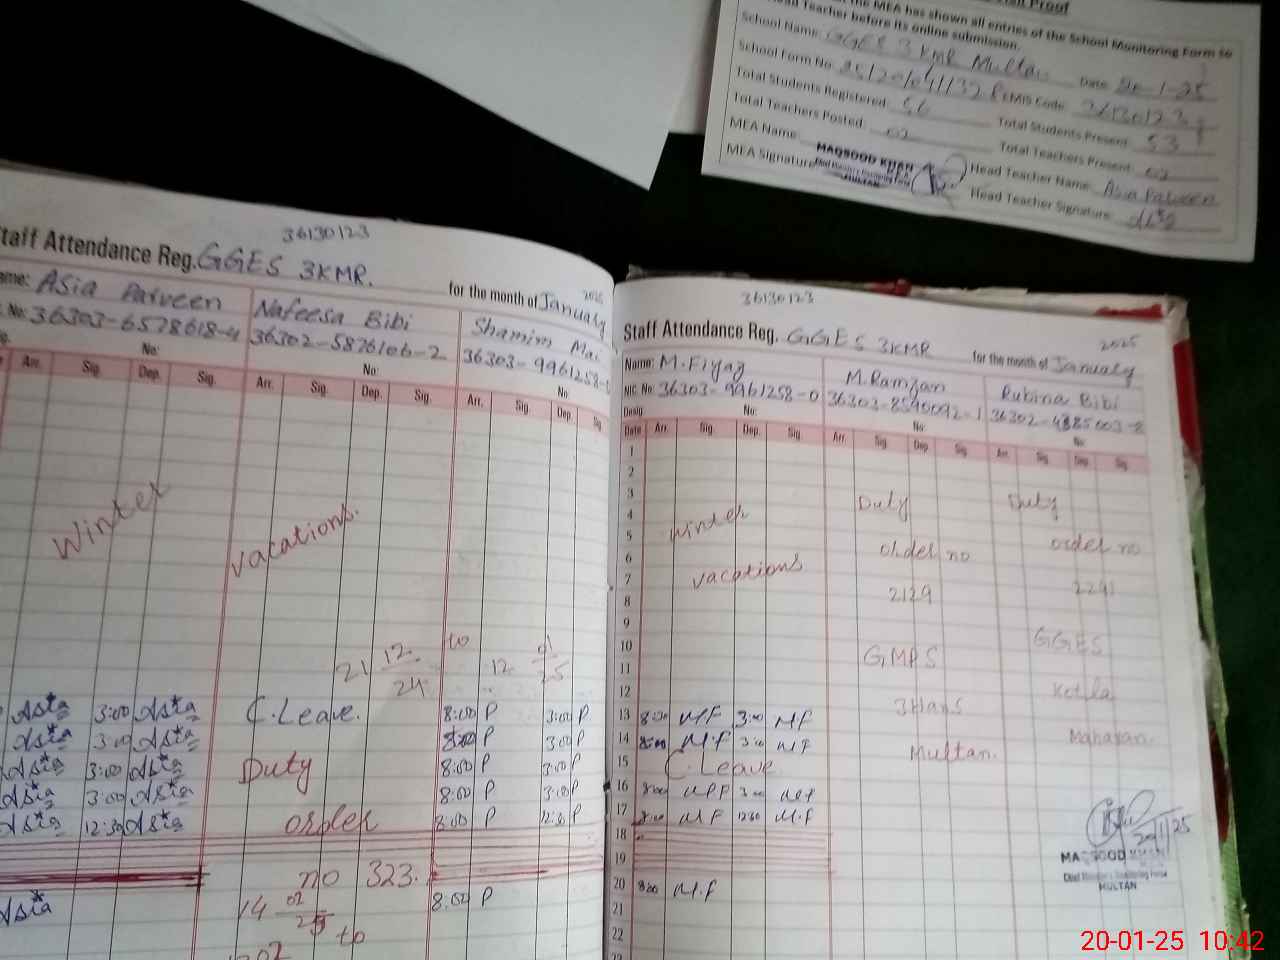 the MEA has shown all entries of the School Monitoring Form to
Head Teacher before its online submission.
School Name: GGES 3 KMR Multan Date: 20-1-25
School Form No: EMIS Code: 36130123
Total Students Registered: 56 Total Students Present: 53
Total Teachers Posted: 02 Total Teachers Present: 02
MEA Name: Head Teacher Name: Asia Parveen
MEA Signature: Head Teacher Signature:
MAQSOOD KHAN
MULTAN
36130123
Staff Attendance Reg. GGES 3KMR. for the month of January 2025
Name: Asia Parveen Nafeesa Bibi Shamim Mai
No: 36303-6578618-4 36302-5876106-2 36303-9961258-
No: No: No
Arr. Sig. Dep. Sig. Arr. Sig. Dep. Sig. Arr. Sig. Dep. Sig
Winter vacations.
21 12/24 to 12 01/25
Asia 3:00 Asia C.Leave. 8:00 P 3:00 P
Asia 3:00 Asia 8:00 P 3:00 P
Asia 3:00 Asia Duty 8:00 P 3:00 P
Asia 3:00 Asia 8:00 P 3:00 P
Asia 12:30 Asia order 8:00 P 12:30 P
no 323.
Asia 14 to 8:00 P
36130123
Staff Attendance Reg. GGES 3KMR for the month of January 2025
Name: M.Fiyaz M.Ramzan Rubina Bibi
NIC. No: 36303-9961258-0 36303-8590092-1 36302-4385003-8
Desig. No: No: No:
Date Arr. Sig. Dep. Sig. Arr. Sig. Dep. Sig. Arr. Sig. Dep. Sig.
1
2
3 Duty Duty
4 Winter
5 order no order no
6
7 vacations
8 2129 2291
9
10 GGES
11 GMPS
12 Kotla
13 8:00 MF 3:00 MF
14 8:00 M.F 3:00 MF Maharan
15 C.Leave Multan.
16 8:00 MF 3:00 MF
17 8:00 MF 12:30 M.F
18
19
20 8:00 M.F
21
22
20/1/25
MAQSOOD KHAN
Chief Minister's Monitoring Force
MULTAN
20-01-25 10:42